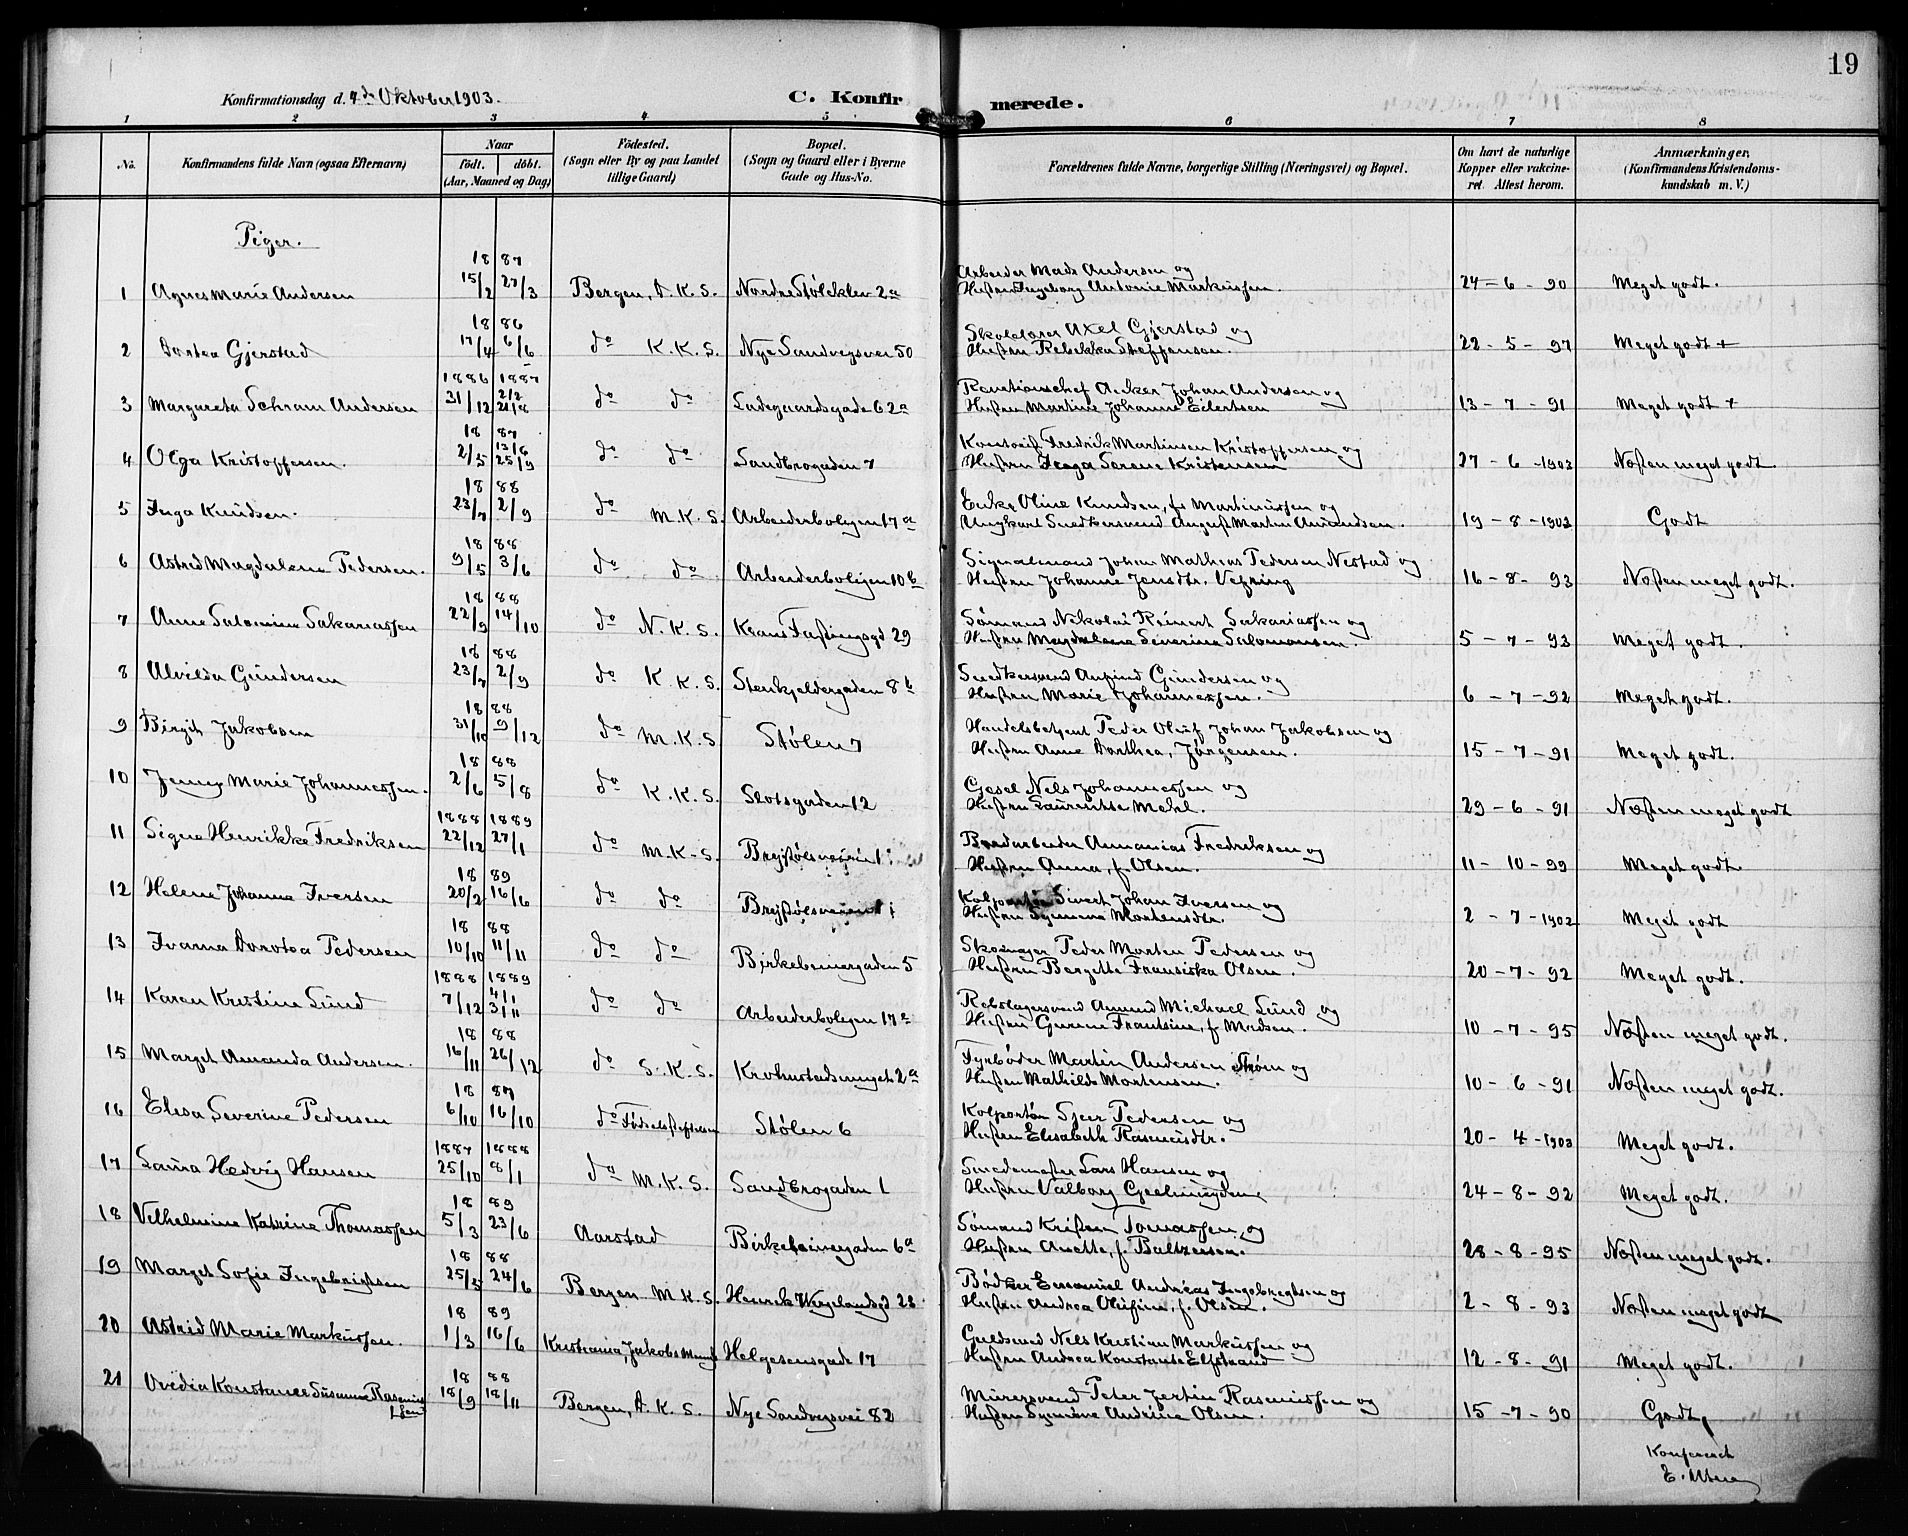 19
Konfirmationsdag d. 4de Oktober 1903. C. Konfirmerede.
1 2 3 4 5 6 7 8
No. Konfirmandens fulde Navn (ogsaa Efternavn) Naar födt. döbt. (Aar, Maaned og Dag) Födested. (Sogn eller By og paa Landet tillige Gaard) Bopæl. (Sogn og Gaard eller i Byerne Gade og Hus-No. Forældrenes fulde Navne, borgerlige Stilling (Næringsvei) og Bopæl. Om havt de naturlige Kopper eller vakcineret. Attest herom. Anmærkninger, (Konfirmandens Kristendomskundskab m. V.)
Piger.
1 Agnes Marie Andersen 1887 15/2 27/3 Bergen, D. K. S. Nordre Stølekler 2a Arbeider Mads Andersen og Hustru Ingeborg Antonie Markussen. 24=6-90 Meget godt.
2 Dortea Gjerstad 1886 17/4 6/6 do K. K. S. Nye Sandvigsvei 50 Skolelærer Axel Gjerstad og Hustru Rebekka Steffensen. 22-5-97 Meget godt +
3 Margareta Schram Andersen 1886 1887 31/12 2/2 21/8 do do Ladegaardsgade 62a Renovationschef Anker Johan Andersen og Hustru Martine Johanne Eilertsen 13-7-91 Meget godt +
4 Olga Kristoffersen. 1887 2/5 13/6 25/9 do do Sandbrogaden 7 Fredrik Martinsen Kristoffersen og Hustru Inga Serene Kristensen 27-6-1903 Næsten meget godt.
5 Inga Knudsen. 1888 23/7 2/9 do M. K. S. Arbeiderboligen 17a Enke Oline Knudsen, f. Martinussen og Ungkarl Snedkersvend August Martin Amundsen. 19-8-1902 Godt
6 Astrid Magdalene Pedersen. 1888 9/5 3/6 do do Arbeiderboligen 10b Signalmand Johan Mathias Pedersen Nestad og Hustru Johanne Jensdtr. Vefring 16-8-93 Næsten meget godt.
7 Anne Salomine Sakariassen 1888 22/9 14/10 do N. K. S. Klaus Fastingsgd 29 Sømand Nikolai Reinert Sakariassen og Hustru Magdalena Severine Salomonsen. 5-7-93 Meget godt.
8 Alvilda Gundersen 1888 23/7 2/9 do K. K. S. Stenkjeldergaden 8b Snedkersvend Anfind Gundersen og Hustru Marie Johannessen. 6-7-92 Meget godt.
9 Birgit Jakobsen 1888 31/10 9/12 do M. K. S Stølen 7 Handelsbetjent Peder Oluf Johan Jakobsen og Hustru Anne Dorthea, Jørgensen. 15-7-91 Meget godt.
10 Jenny Marie Johannessen. 1888 2/6 5/8 do K. K. S. Slotsgaden 12 Gesel Nels Johannessen og Hustru Laurentse Mehl. 29-6-91 Næsten meget godt
11 Signe Henrikke Fredriksen 1888 1889 22/12 27/1 do M. K. S. Breistølsveien 1 Ananias Fredriksen og Hustru Anna, f. Olsen. 11-10-99 Meget godt
12 Helene Johanna Iversen 1889 20/2 16/6 do do Breistølsveien 1 Kolportør Sivert Johan Iversen og Hustru Synneva Mortensdtr. 2-7-1902 Meget godt
13 Ivarna Dorotea Pedersen 1888 10/10 11/11 do do Birkebeinergaden 5 Skomager Peder Morten Pedersen og Hustru Bergitte Fransiska Olsen. 20-7-92 Meget godt.
14 Karen Kristine Lund 1888 1889 7/12 4/1 3/11 do do Arbeiderboligen 17a Rebslagersvend Amund Michael Lund og Hustru Gurene Frantsine, f. Madsen. 10-7-95 Næsten meget godt.
15 Marget Amanda Andersen. 1888 16/11 26/12 do S. K. S. Krohnstadsmuget 2a Fyrbøder Martin Andersen Strøm og Hustru Mathilde Mortensen. 10-6-91 Næsten meget godt.
16 Elisa Severine Pedersen 1887 6/10 16/10 do Fødselsstiftelsen Stølen 6 Kolportør Sjur Pedersen og Hustru Elisabeth Rasmusdtr. 20-4-1903 Meget godt.
17 Laura Hedvig Hansen 1887 1888 25/10 8/1 do M. K. S. Sandbrogaden 1 Smedemester Lars Hansen og Hustru Valborg Geelmuyden 24-8-92 Meget godt.
18 Vilhelmine Katrine Thomassen 1889 5/3 23/6 Aarstad Birkebeinergaden 6a Sømand Kristen Tomassen og Hustru Anette, f. Baltzersen. 28-8-95 Næsten meget godt.
19 Marget Sofie Ingebrigtsen 1888 25/5 24/6 Bergen M K S. Henrik Wergelandsgd 28 Bødker Emanuel Andreas Ingebregtsen og Hustru Andrea Olufine, f. Olsen. 2-8-93 Næsten meget godt
20 Astrid Marie Markussen. 1889 1/3 16/6 Kristiania, Jakobs Menigh Helgesensgade 17 Guldsmed Nels Kristian Markussen og Hustru Andrea Konstanse Elfstrand 12-8-91 Meget godt.
21 Ovedia Konstanse Susanne Rasmussen 1888 18/9 18/11 Bergen, D. K. S. Nye Sandvigsvei 82 Murersvend Peter Jertin Rasmussen og Hustru Synnøve Andrine Olsen. 15-7-90 Godt
Konfereret